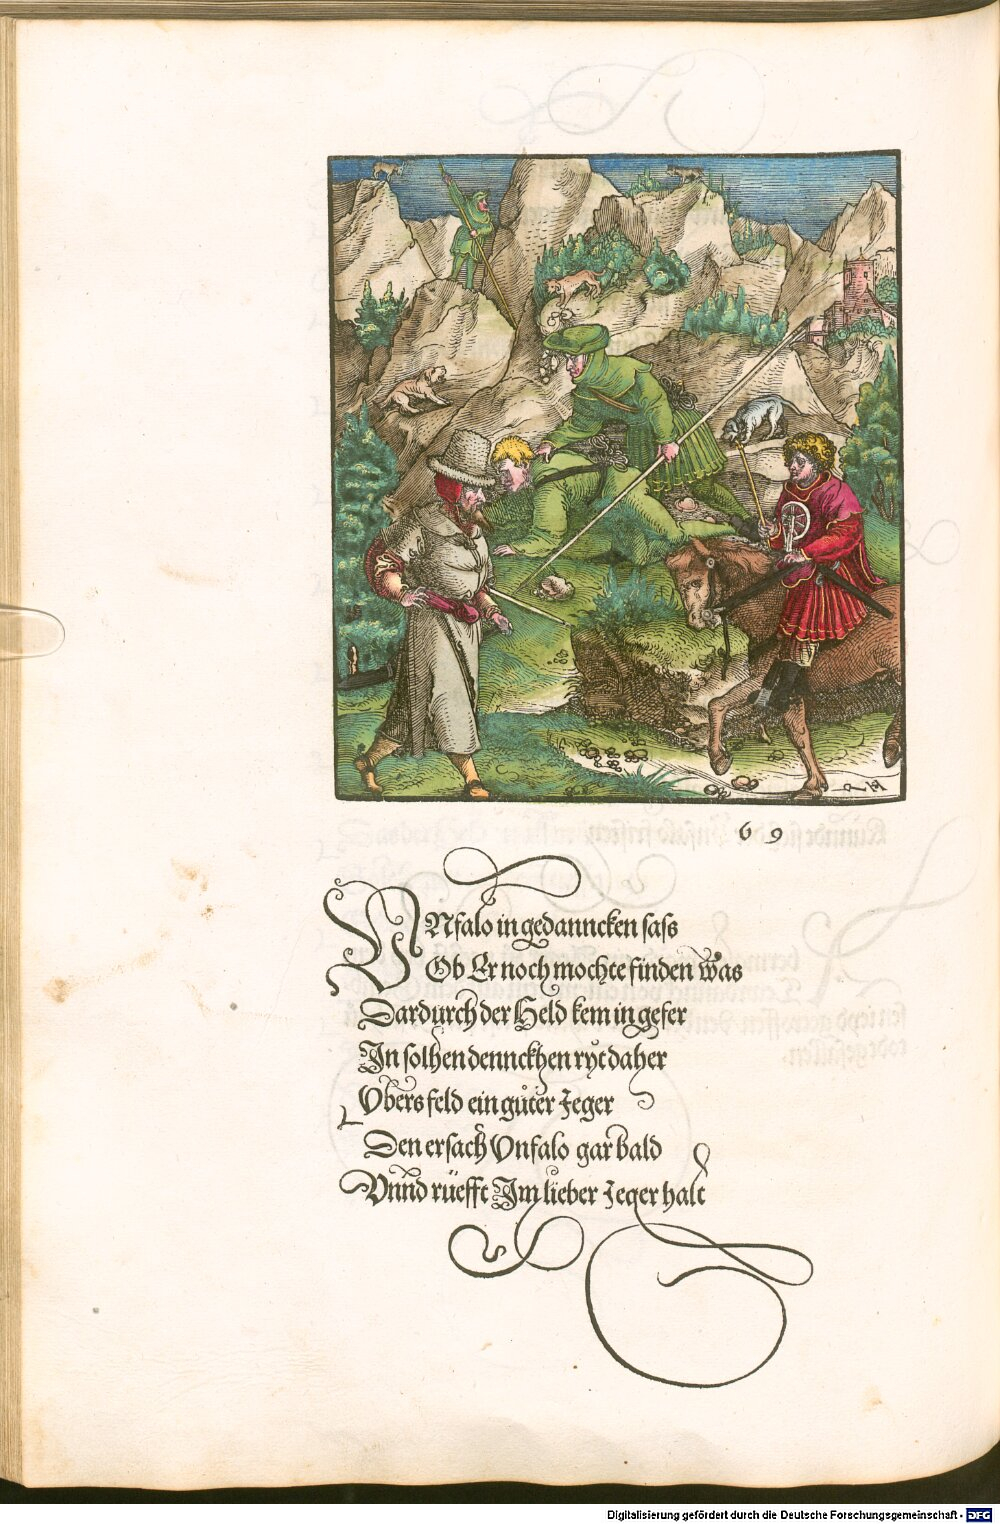 69
VNfalo in gedanncken sass
Ob Er noch mochte finden was
Dardurch der Held kem in gefer
In solhen dennckhen ryt daher
Vbers feld ein gůter Jeger
Den ersach Vnfalo gar bald
Vnnd rüefft Im lieber Jeger halt
Digitalisierung gefördert durch die Deutsche Forschungsgemeinschaft - DFG